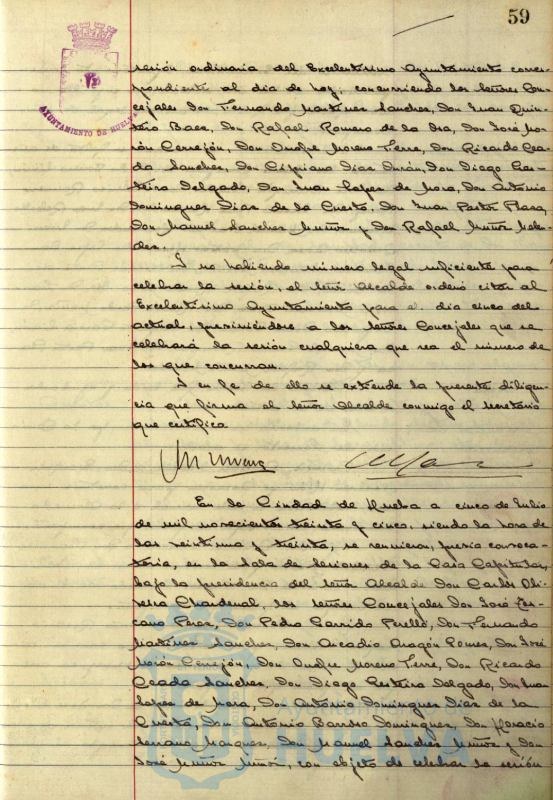 59
AYUNTAMIENTO DE HUELVA
sesión ordinaria del Excelentísimo Ayuntamiento corres-
pondiente al día de hoy, concurriendo los señores Con-
cejales Don Fernando Martínez Sánchez, Don Juan Quin-
tero Baez, Don Rafael Romero de la Osa, Don José Mo-
rón Cerrejón, Don Onofre Moreno Tierre, Don Ricardo Cea-
da Sánchez, Don Cipriano Díaz Durán, Don Diego Les-
teira Delgado, Don Juan López de Mora, Don Antonio
Domínguez Díaz de la Cuesta, Don Juan Pastor Plaza,
Don Manuel Sánchez Muñoz y Don Rafael Muñoz
Y no habiendo número legal suficiente para
celebrar la sesión, el señor Alcalde ordenó citar al
Excelentísimo Ayuntamiento para el día cinco del
actual, previniéndose a los señores Concejales que se
celebrará la sesión cualquiera que sea el número de
los que concurran.
Y en fe de ello se extiende la presente diligen-
cia que firma el señor Alcalde conmigo el secretario
que certifica
En la Ciudad de Huelva a cinco de Julio
de mil novecientos treinta y cinco, siendo la hora de
las veintiuna y treinta, se reunieron, previa convoca-
toria, en la Sala de Sesiones de la Casa Capitular,
bajo la presidencia del señor Alcalde Don Carlos Oli-
veira Chardenal, los señores Concejales Don José Lez-
cano Perez, Don Pedro Garrido Perelló, Don Fernando
Martínez Sánchez, Don Arcadio Aragón Gómez, Don José
Morón Cerrejón, Don Onofre Moreno Tierre, Don Ricardo
Ceada Sánchez, Don Diego Lesteira Delgado, Don Juan
López de Mora, Don Antonio Domínguez Díaz de la
Cuesta, Don Antonio Barroso Domínguez, Don Horacio
Serrano Márquez, Don Manuel Sánchez Muñoz y Don
José Muñoz Muñoz, con objeto de celebrar la sesión
HUELVA